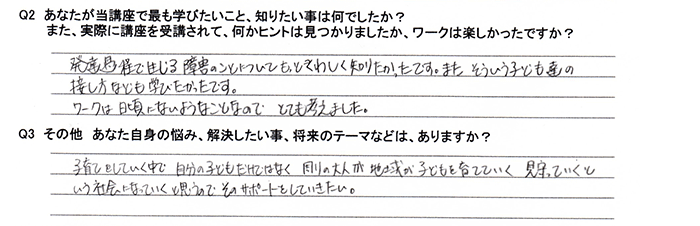 Q2 あなたが当講座で最も学びたいこと、知りたい事は何でしたか？
また、実際に講座を受講されて、何かヒントは見つかりましたか、ワークは楽しかったですか？
発達過程で生じる障害のことについてもっとくわしく知りたかったです。また そういう子ども達の
接し方なども学びたかったです。
ワークは日頃にないようなことなので とても考えました。
Q3 その他 あなた自身の悩み、解決したい事、将来のテーマなどは、ありますか？
子育てをしていく中で 自分の子どもだけではなく 周りの大人が 地域が 子どもを育てていく 見守っていくと
いう社会になっていくと思うので そのサポートをしていきたい。